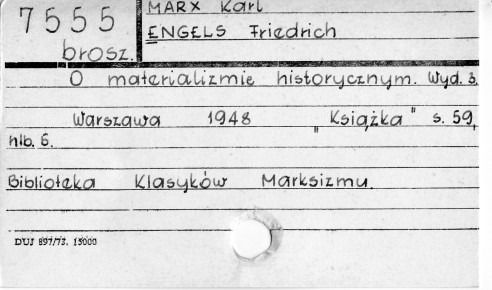 7555
brosz.
MARX Karl
ENGELS Friedrich
O materializmie historycznym. Wyd. 3.
Warszawa 1948 "Książka" s. 59,
nlb. 5.
Biblioteka Klasyków Marksizmu.
DUJ 897/73. 15000